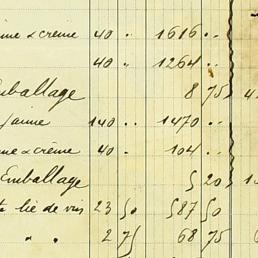 ne & crème 40 " 1616 "
40 " 1264 "
Emballage 8 75
jaune 140 " 1470 "
ne & crème 40 " 104 "
Emballage 5 20
lie de vin 23 50 587 50
" " 2 75 68 75